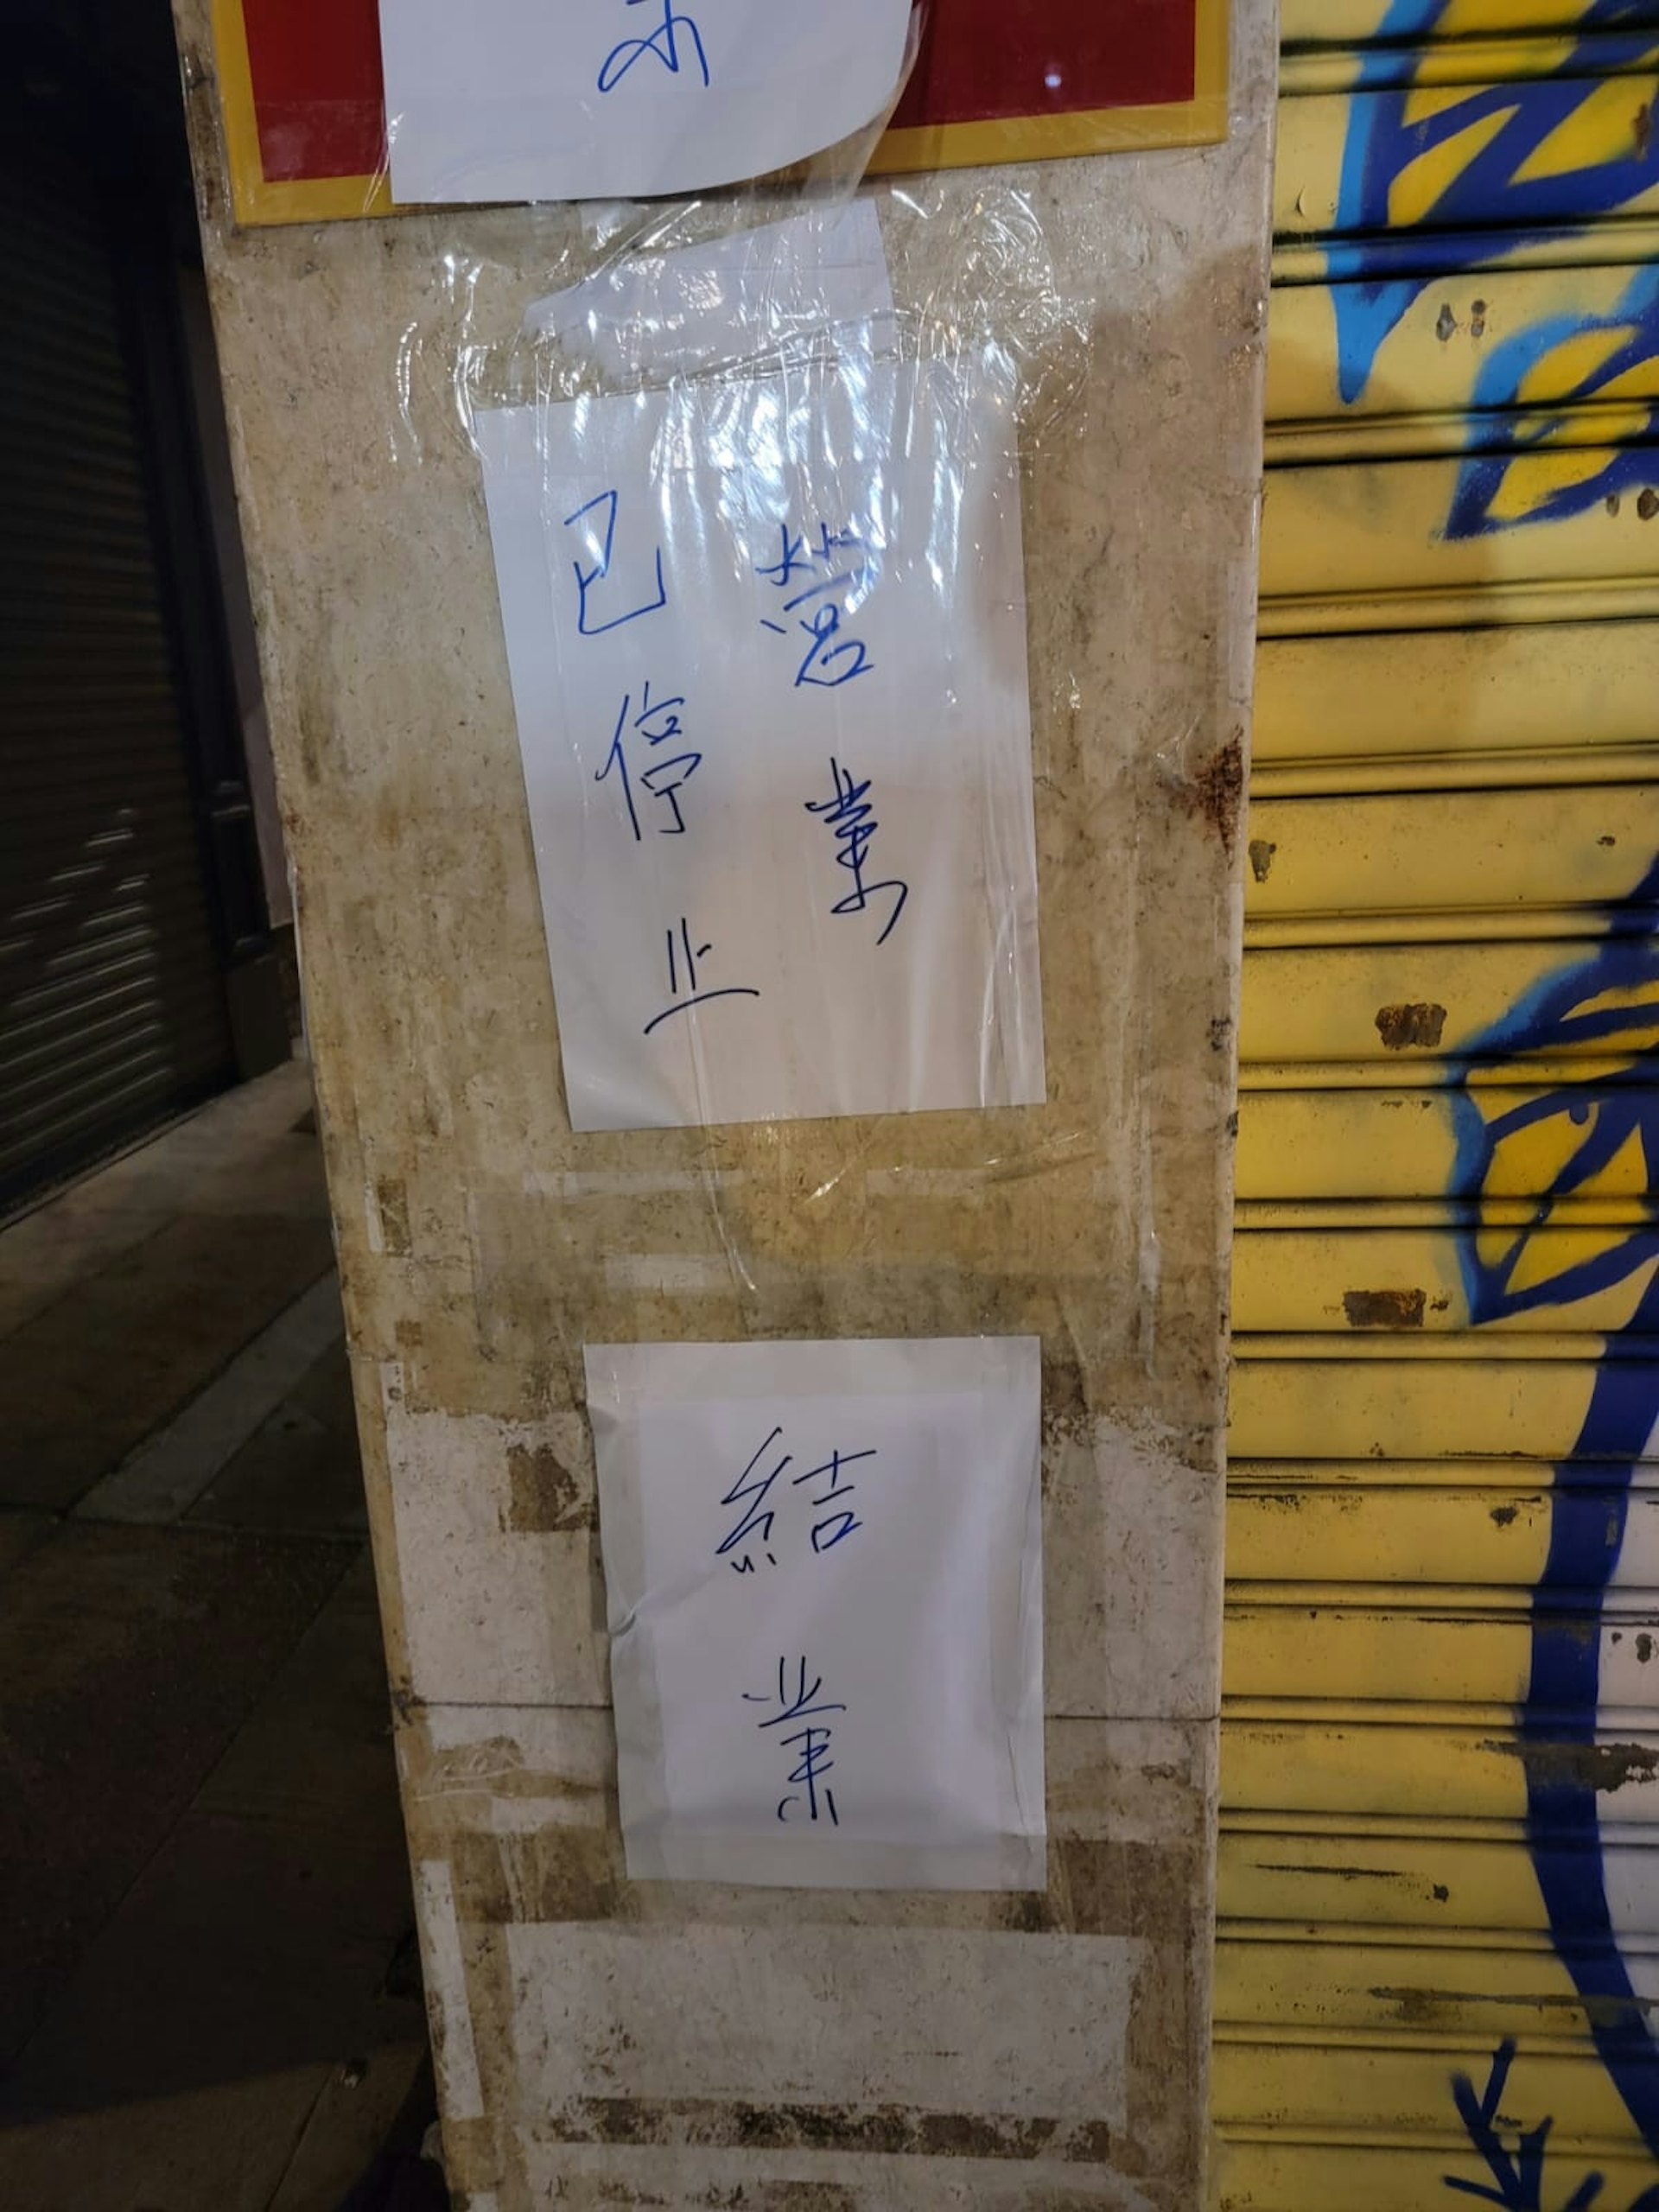 已停止
營業
結業